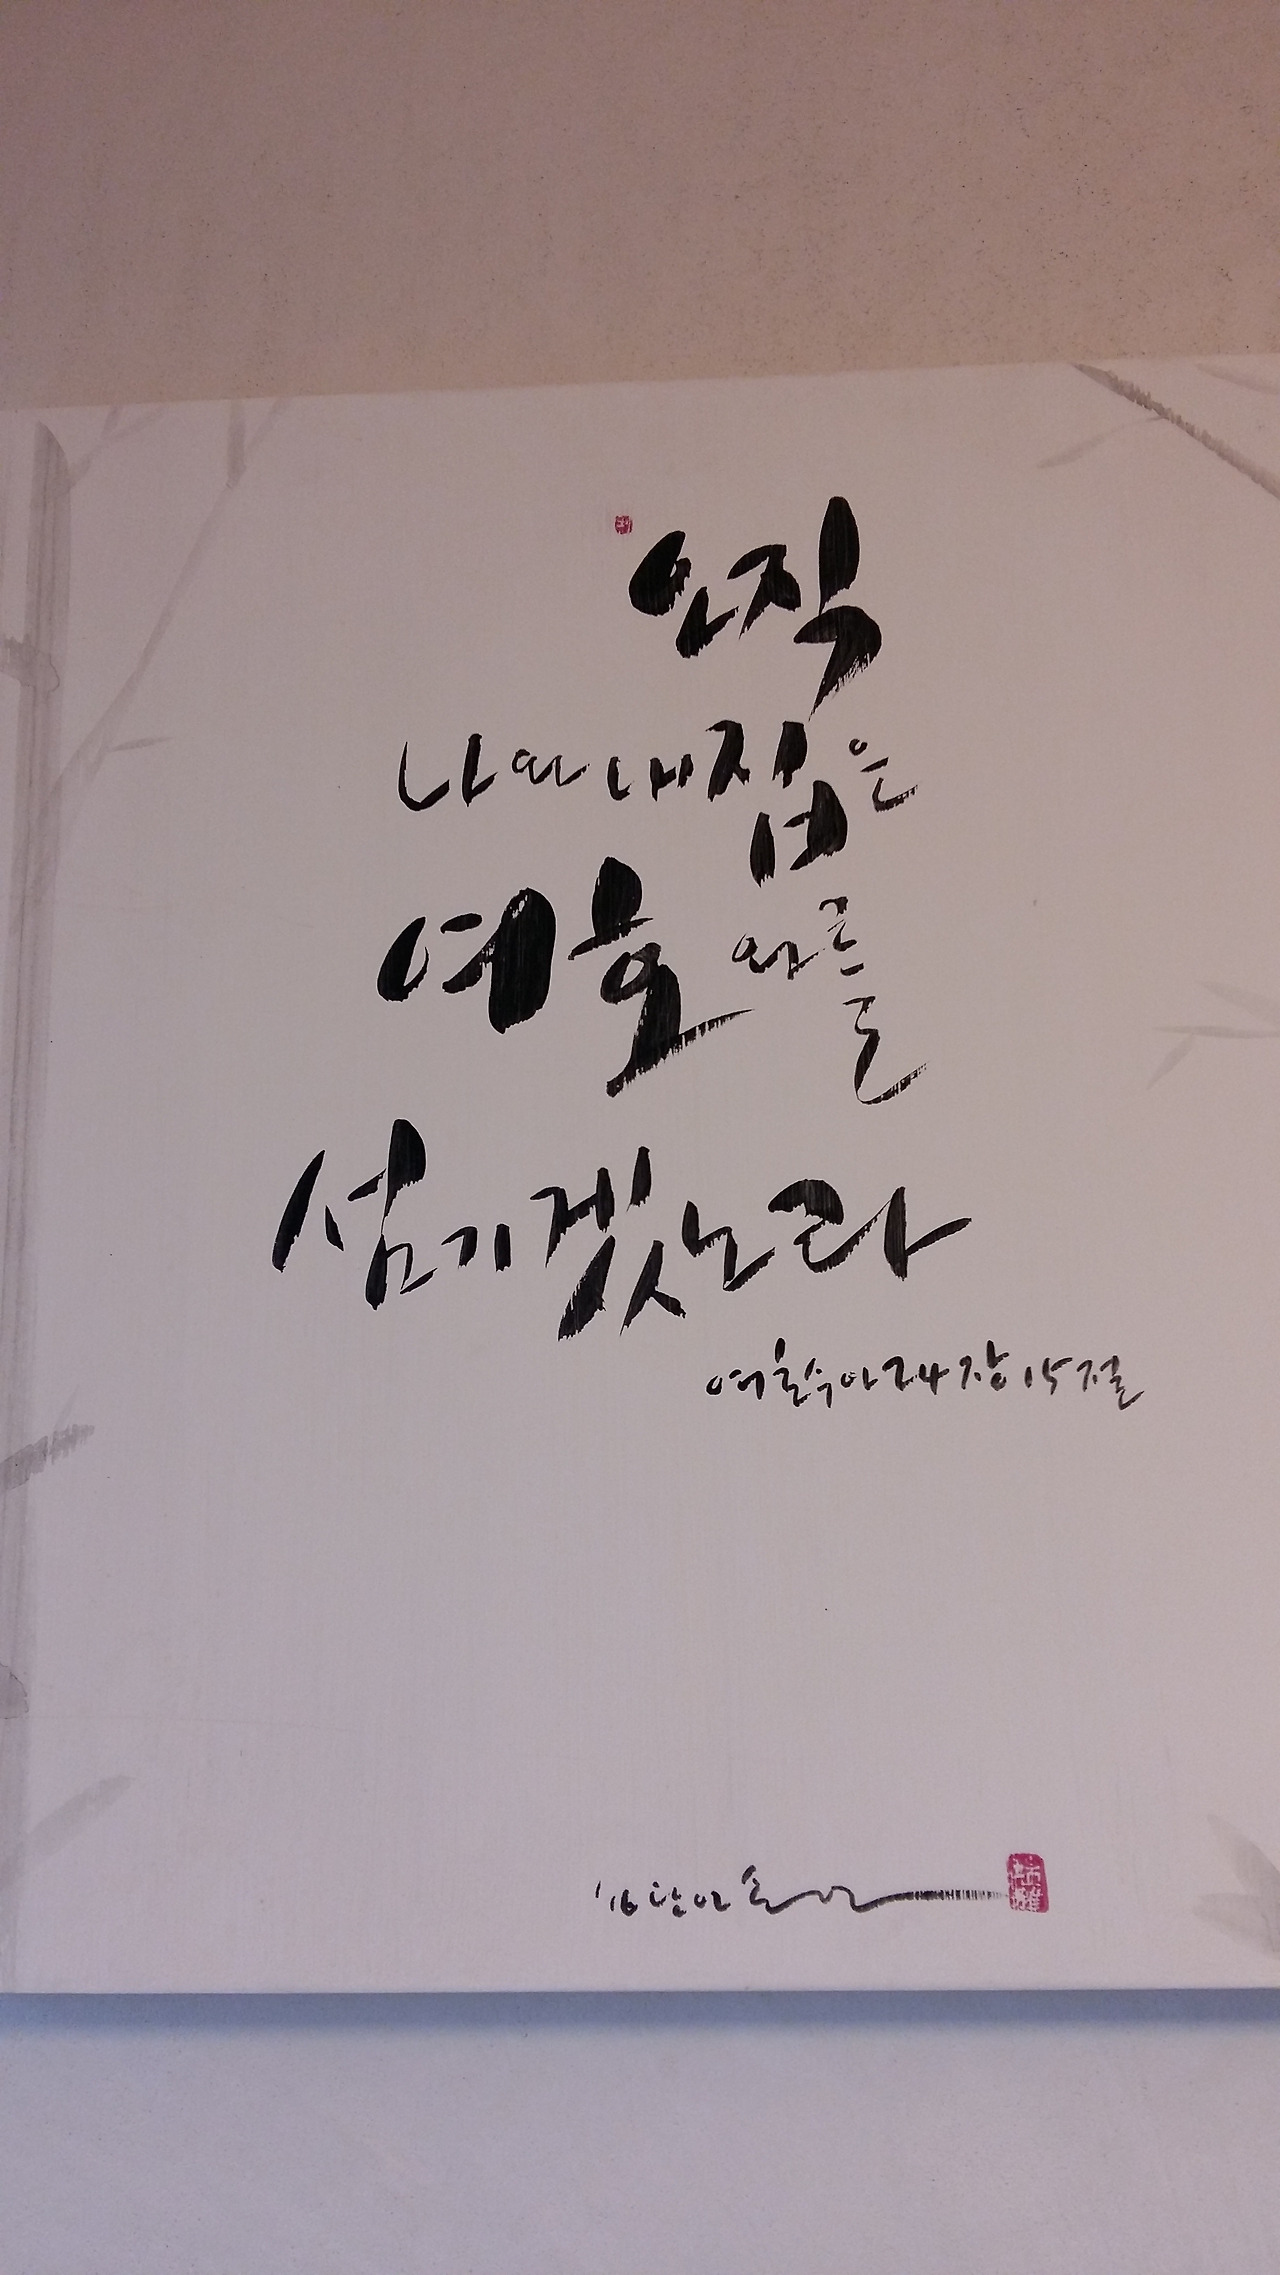 오직
나와 내 집은
여호와를
섬기겠노라
여호수아 24장 15절
'16